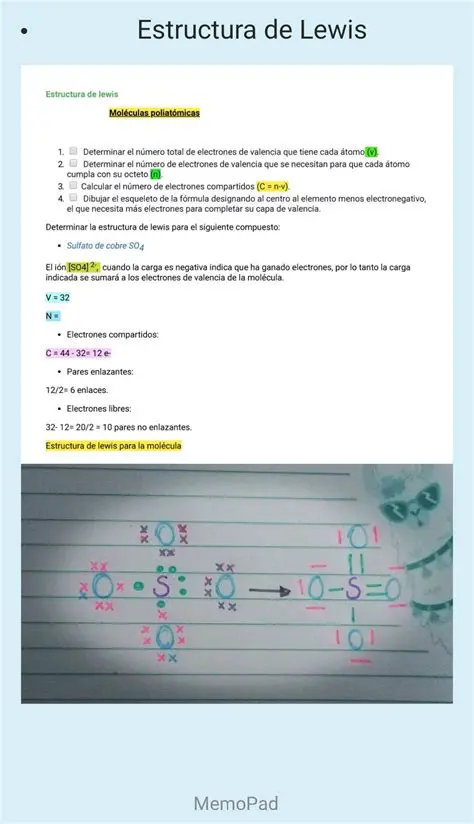 • Estructura de Lewis
Estructura de lewis
Moléculas poliatómicas
1. Determinar el número total de electrones de valencia que tiene cada átomo (v).
2. Determinar el número de electrones de valencia que se necesitan para que cada átomo
cumpla con su octeto (n).
3. Calcular el número de electrones compartidos (C = n-v).
4. Dibujar el esqueleto de la fórmula designando al centro al elemento menos electronegativo,
el que necesita más electrones para completar su capa de valencia.
Determinar la estructura de lewis para el siguiente compuesto:
• Sulfato de cobre SO4
El ión [SO4] 2-, cuando la carga es negativa indica que ha ganado electrones, por lo tanto la carga
indicada se sumará a los electrones de valencia de la molécula.
V = 32
N =
• Electrones compartidos:
C = 44 - 32= 12 e-
• Pares enlazantes:
12/2= 6 enlaces.
• Electrones libres:
32- 12= 20/2 = 10 pares no enlazantes.
Estructura de lewis para la molécula
O O
O S O O S O
O O
MemoPad